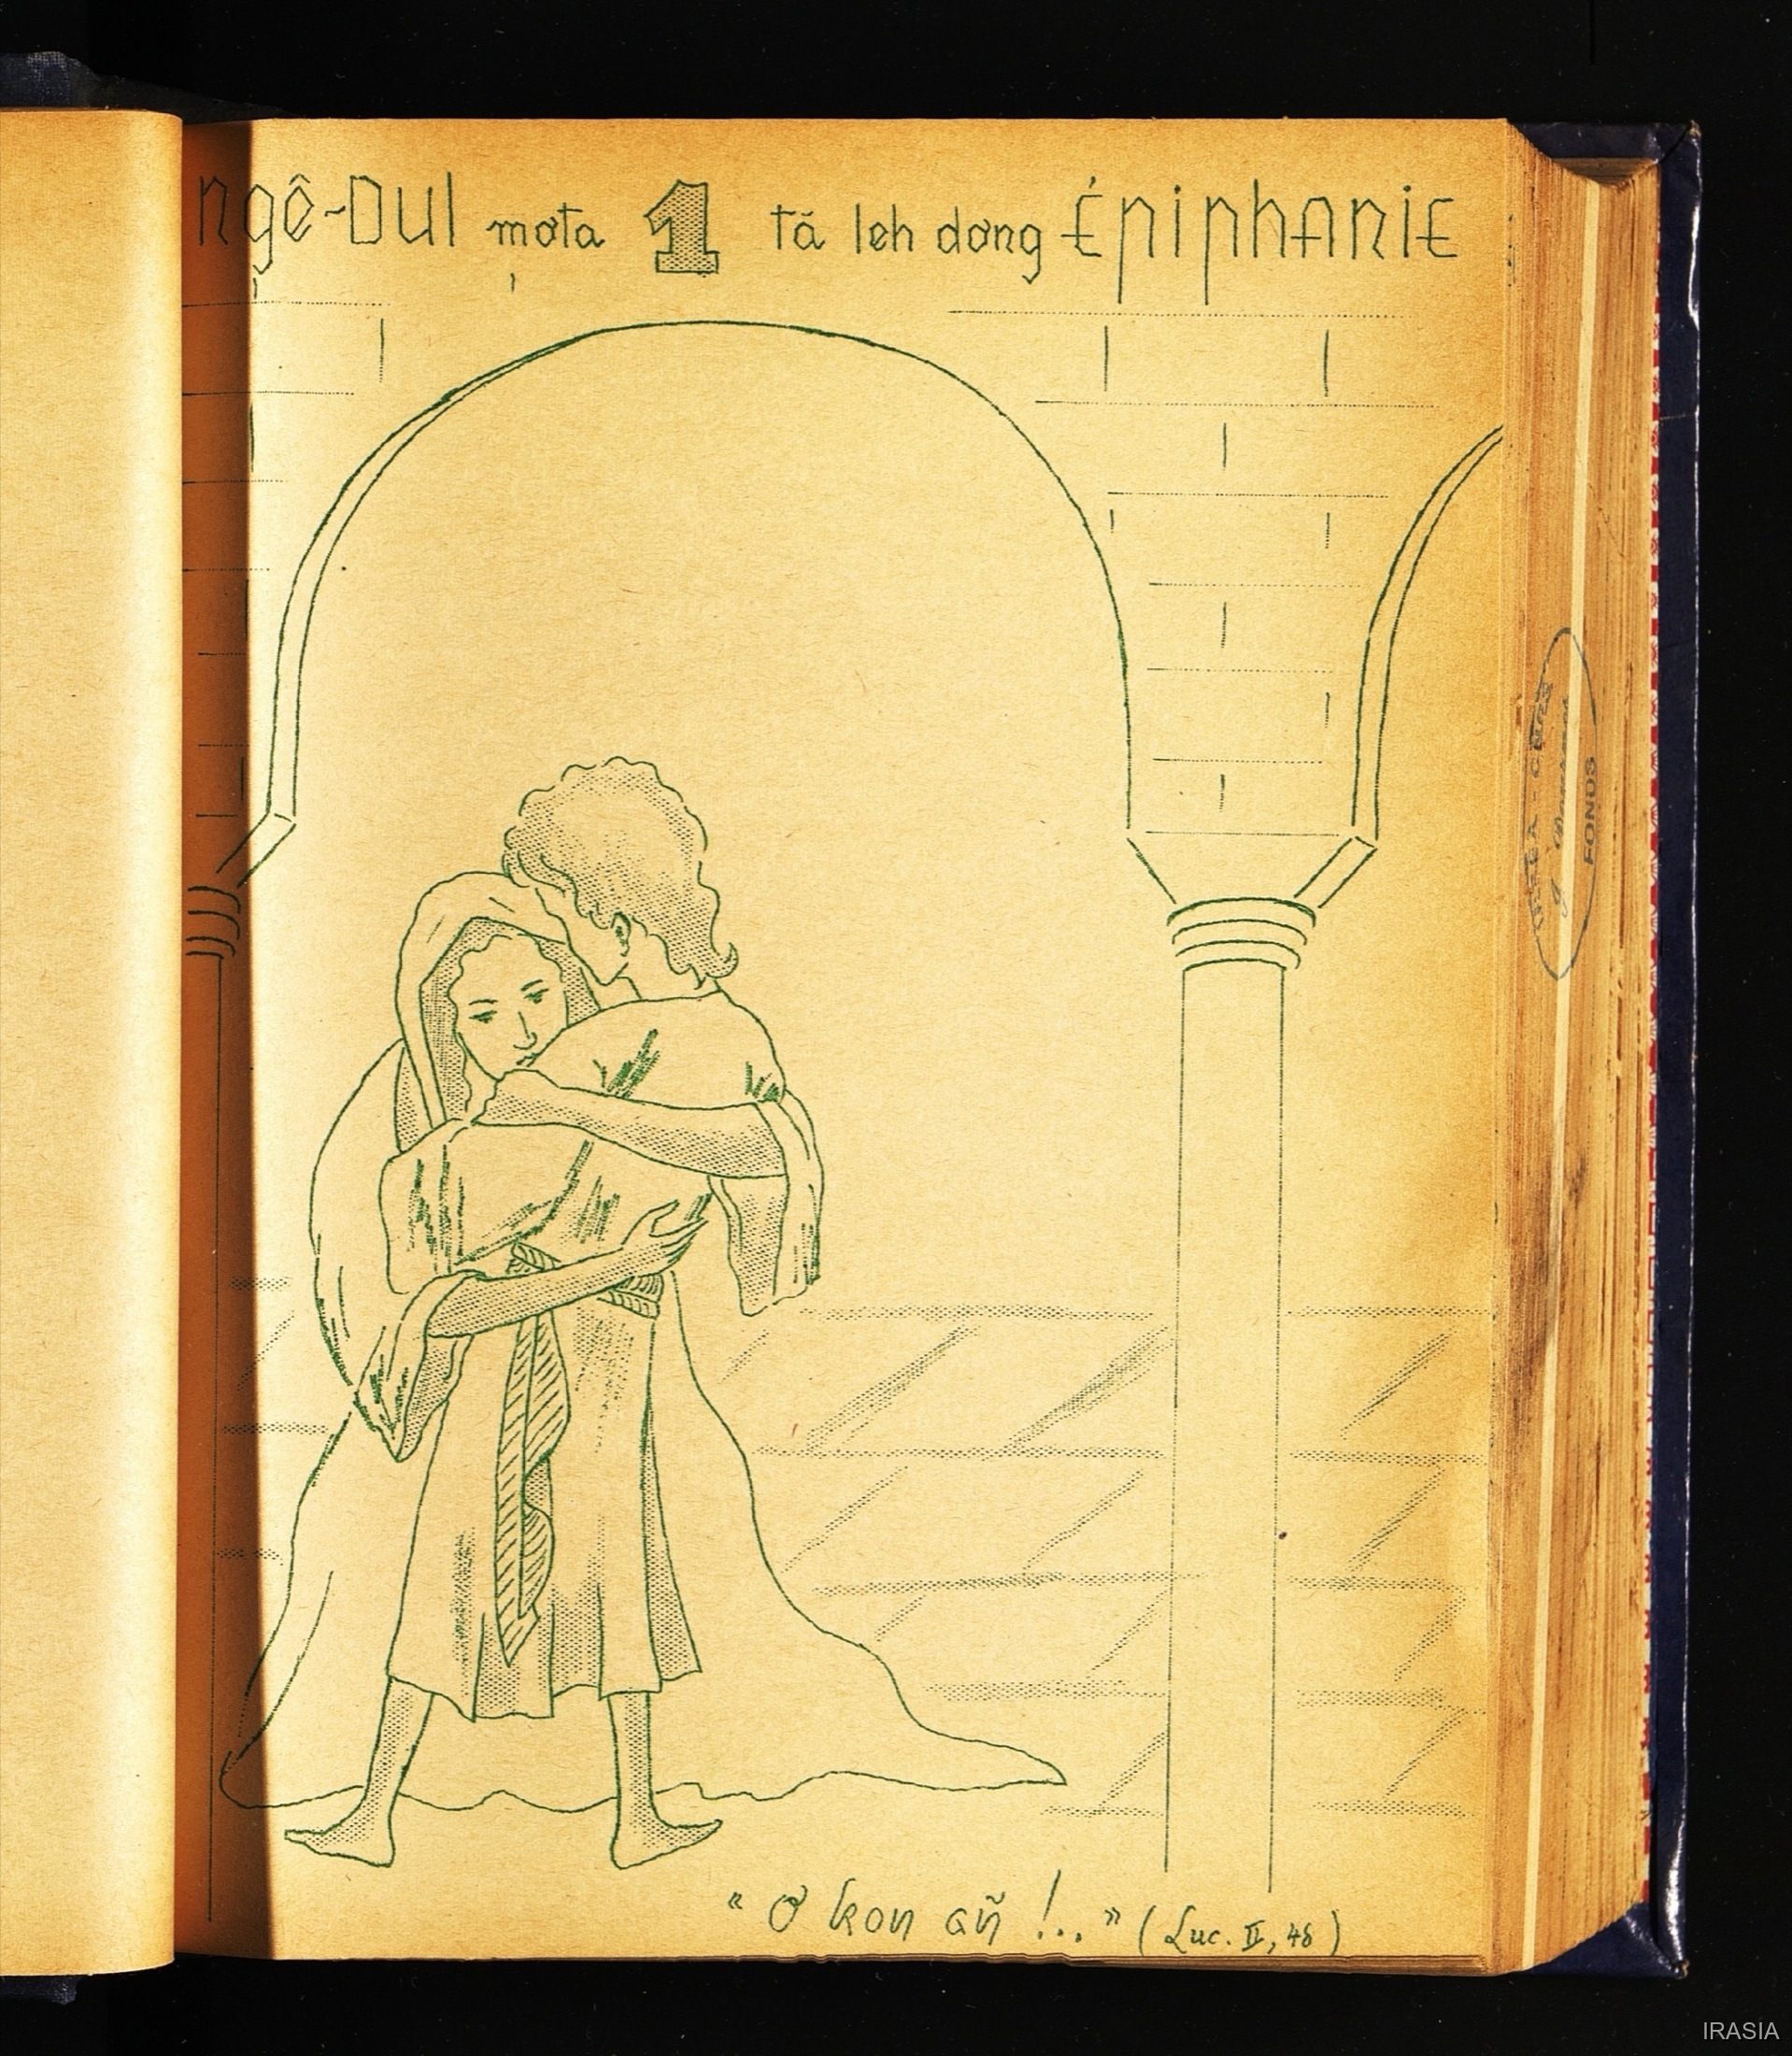 ngê-Dul mơta 1 tă leh dơng ÉpiphAniE
" Ơ kon añ !... " ( Luc. II, 48 )
FONDS
IRASIA